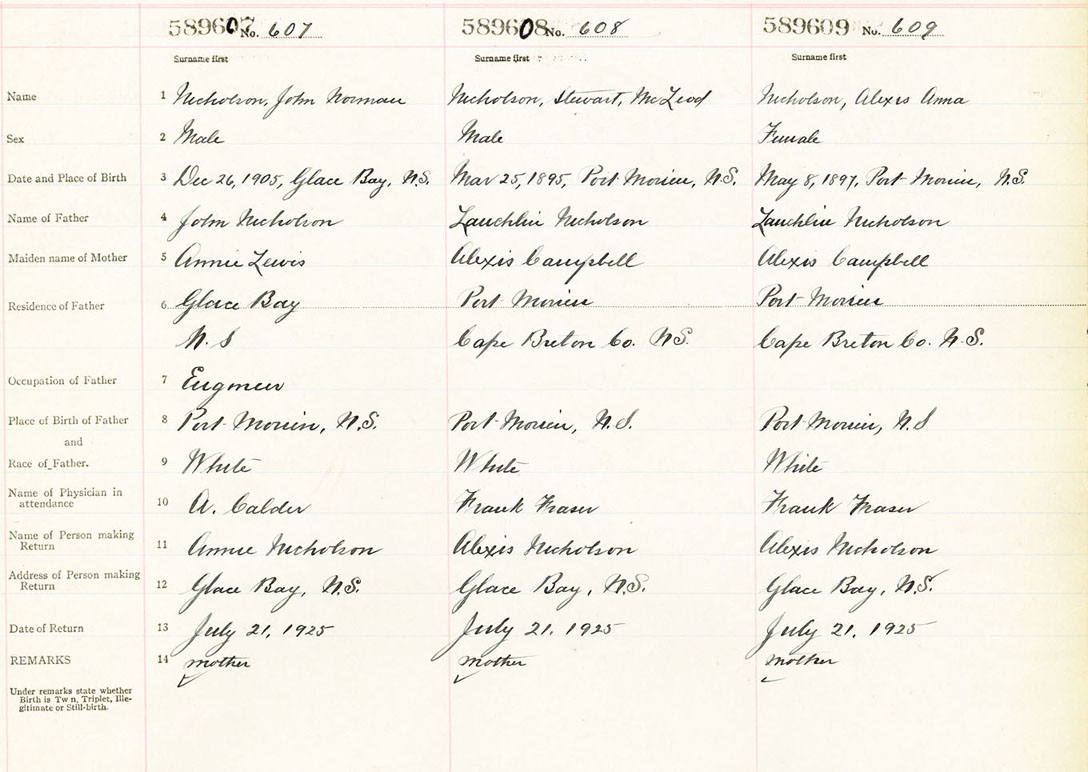 589607 No. 607 589608 No. 608 589609 No. 609
Surname first Surname first Surname first
Name 1 Nicholson, John Norman Nicholson, Stewart, McLeod Nicholson, Alexis Anna
Sex 2 Male Male Female
Date and Place of Birth 3 Dec 26, 1905, Glace Bay, N.S. Mar 25, 1895, Port Morien, N.S. May 8, 1897, Port Morien, N.S.
Name of Father 4 John Nicholson Lauchlin Nicholson Lauchlin Nicholson
Maiden name of Mother 5 Annie Lewis Alexis Campbell Alexis Campbell
Residence of Father 6 Glace Bay Port Morien Port Morien
N.S Cape Breton Co. N.S. Cape Breton Co. N.S.
Occupation of Father 7 Engineer
Place of Birth of Father 8 Port Morien, N.S. Port Morien, N.S. Port Morien, N.S
and
Race of Father. 9 White White White
Name of Physician in
attendance 10 A. Calder Frank Fraser Frank Fraser
Name of Person making
Return 11 Annie Nicholson Alexis Nicholson Alexis Nicholson
Address of Person making
Return 12 Glace Bay, N.S. Glace Bay, N.S. Glace Bay, N.S.
Date of Return 13 July 21, 1925 July 21, 1925 July 21, 1925
REMARKS 14 mother mother mother
Under remarks state whether
Birth is Tw n, Triplet, Ille-
gitimate or Still-birth.